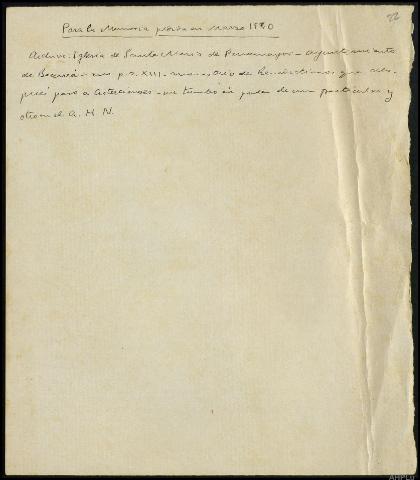 22
Para la Memoria pedida en Marzo 1930
Archivo: Iglesia de Santa Maria de Penamayor - Ayuntamiento
de Becerreá - es p. s. XIII - monasterio de Benedictinos que des-
pués pasó a Cistercienses - un tumbo en poder de un particular y
otro en el A. H. N.
AHPLU